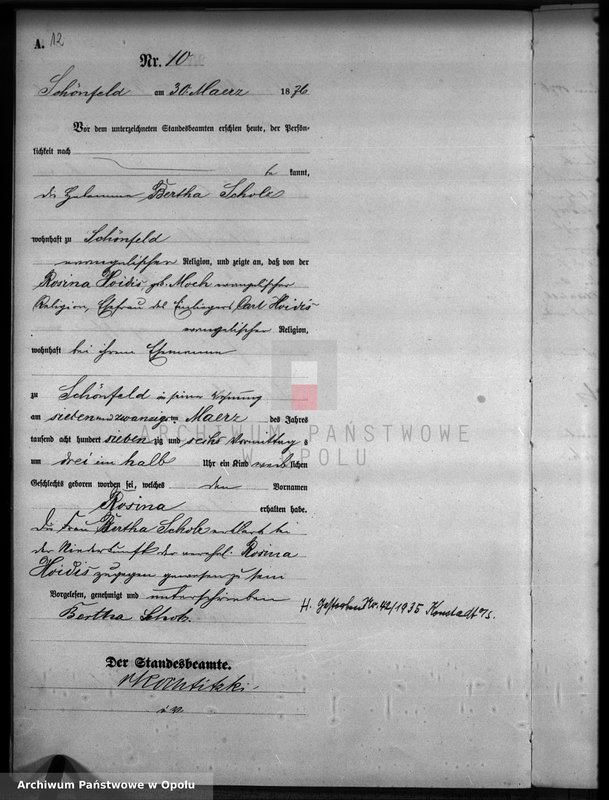 A. 12
Nr. 10
Schönfeld am 30 Maerz 1876
Vor dem unterzeichneten Standesbeamten erschien heute, der Persön-
lichkeit nach
be kannt,
die Hebamme Bertha Scholz
wohnhaft zu Schönfeld
evangelischer Religion, und zeigte an, daß von der
Rosina Hoidis, geb. Moch evangelischer
Religion, Ehefrau des Einliegers Carl Hoidis
evangelischer Religion,
wohnhaft bei ihrem Ehemanne
zu Schönfeld in seiner Wohnung
am sieben und zwanzigsten Maerz des Jahres
tausend acht hundert siebenzig und sechs Vormittags
um drei ein halb Uhr ein Kind weiblichen
Geschlechts geboren worden sei, welches den Vornamen
Rosina erhalten habe.
Die Frau Bertha Scholz erklaert bei
der Niederkunft der verehel. Rosina
Hoidis zugegen gewesen zu sein
Vorgelesen, genehmigt und unterschrieben
Bertha Scholz
H. Gestorben Nr. 42/1935 Konstadt O/S.
Der Standesbeamte.
ARCHIWUM PAŃSTWOWE
W OPOLU
Archiwum Państwowe w Opolu